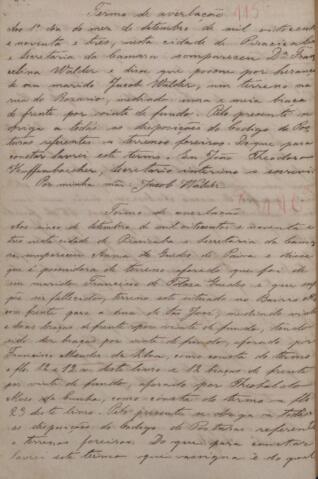 Termo de averbação 115
Aos 1º dia do mez de Setembro de mil oitocentos
e noventa e tres, nesta cidade de Piracicaba
e Secretaria da Camara compareceu Dª Fran
celina Walder e disse que possue por herança
de seu marido Jacob Walder, um terreno na
rua do Rozario, medindo uma e meia braça
de frente por vinte de fundo. Pelo presente se
obriga a todas as disposições do Codigo de Pos
turas referentes a terrenos foreiros. Do que para
constar lavrei este termo. Eu João Theodoro
Secretario interino o escrevi
Por minha mãe Jacob Walder
Termo de averbação
Aos cinco de Setembro de mil oitocentos e noventa e
tres nesta cidade de Piracicaba e Secretaria da Cama
ra, compareceu Anna de Guedes de Paiva e disse
que é possuidora do terreno aforado que foi de
seu marido Francisco de Guedes e que
fallecido, terreno este situado no Bairro
com frente para a rua de São José, medindo vinte
e duas braças de frente por vinte de fundo, sendo
por vinte de fundo, aforado por
Francisco Mendes da Silva, como consta do termo
a fls. 12 e 12 v. deste livro e 12 braças de frente
por vinte de fundo, aforado por Theobaldo
da Cunha, como consta do termo a fls
23 deste livro. Pelo presente se obriga a todas
as disposições do Codigo de Posturas referentes
a terrenos foreiros. Do que para constar
lavrei este termo que assigna e do qual